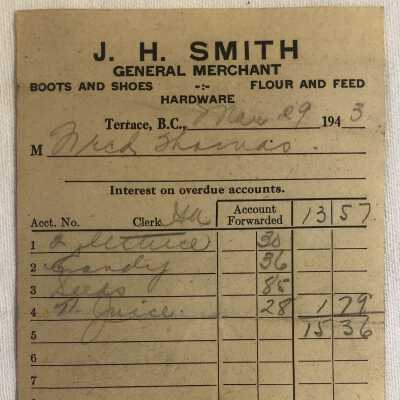 J. H. SMITH
GENERAL MERCHANT
BOOTS AND SHOES -:- FLOUR AND FEED
HARDWARE
Terrace, B.C., Mar 29 1943
M Thomas.
Interest on overdue accounts.
Acct. No. Clerk Account Forwarded 13 57
1 lettuce 30
2 Candy 36
3 Seeds 85
4 Juice 28 1 79
5 15 36
6
7